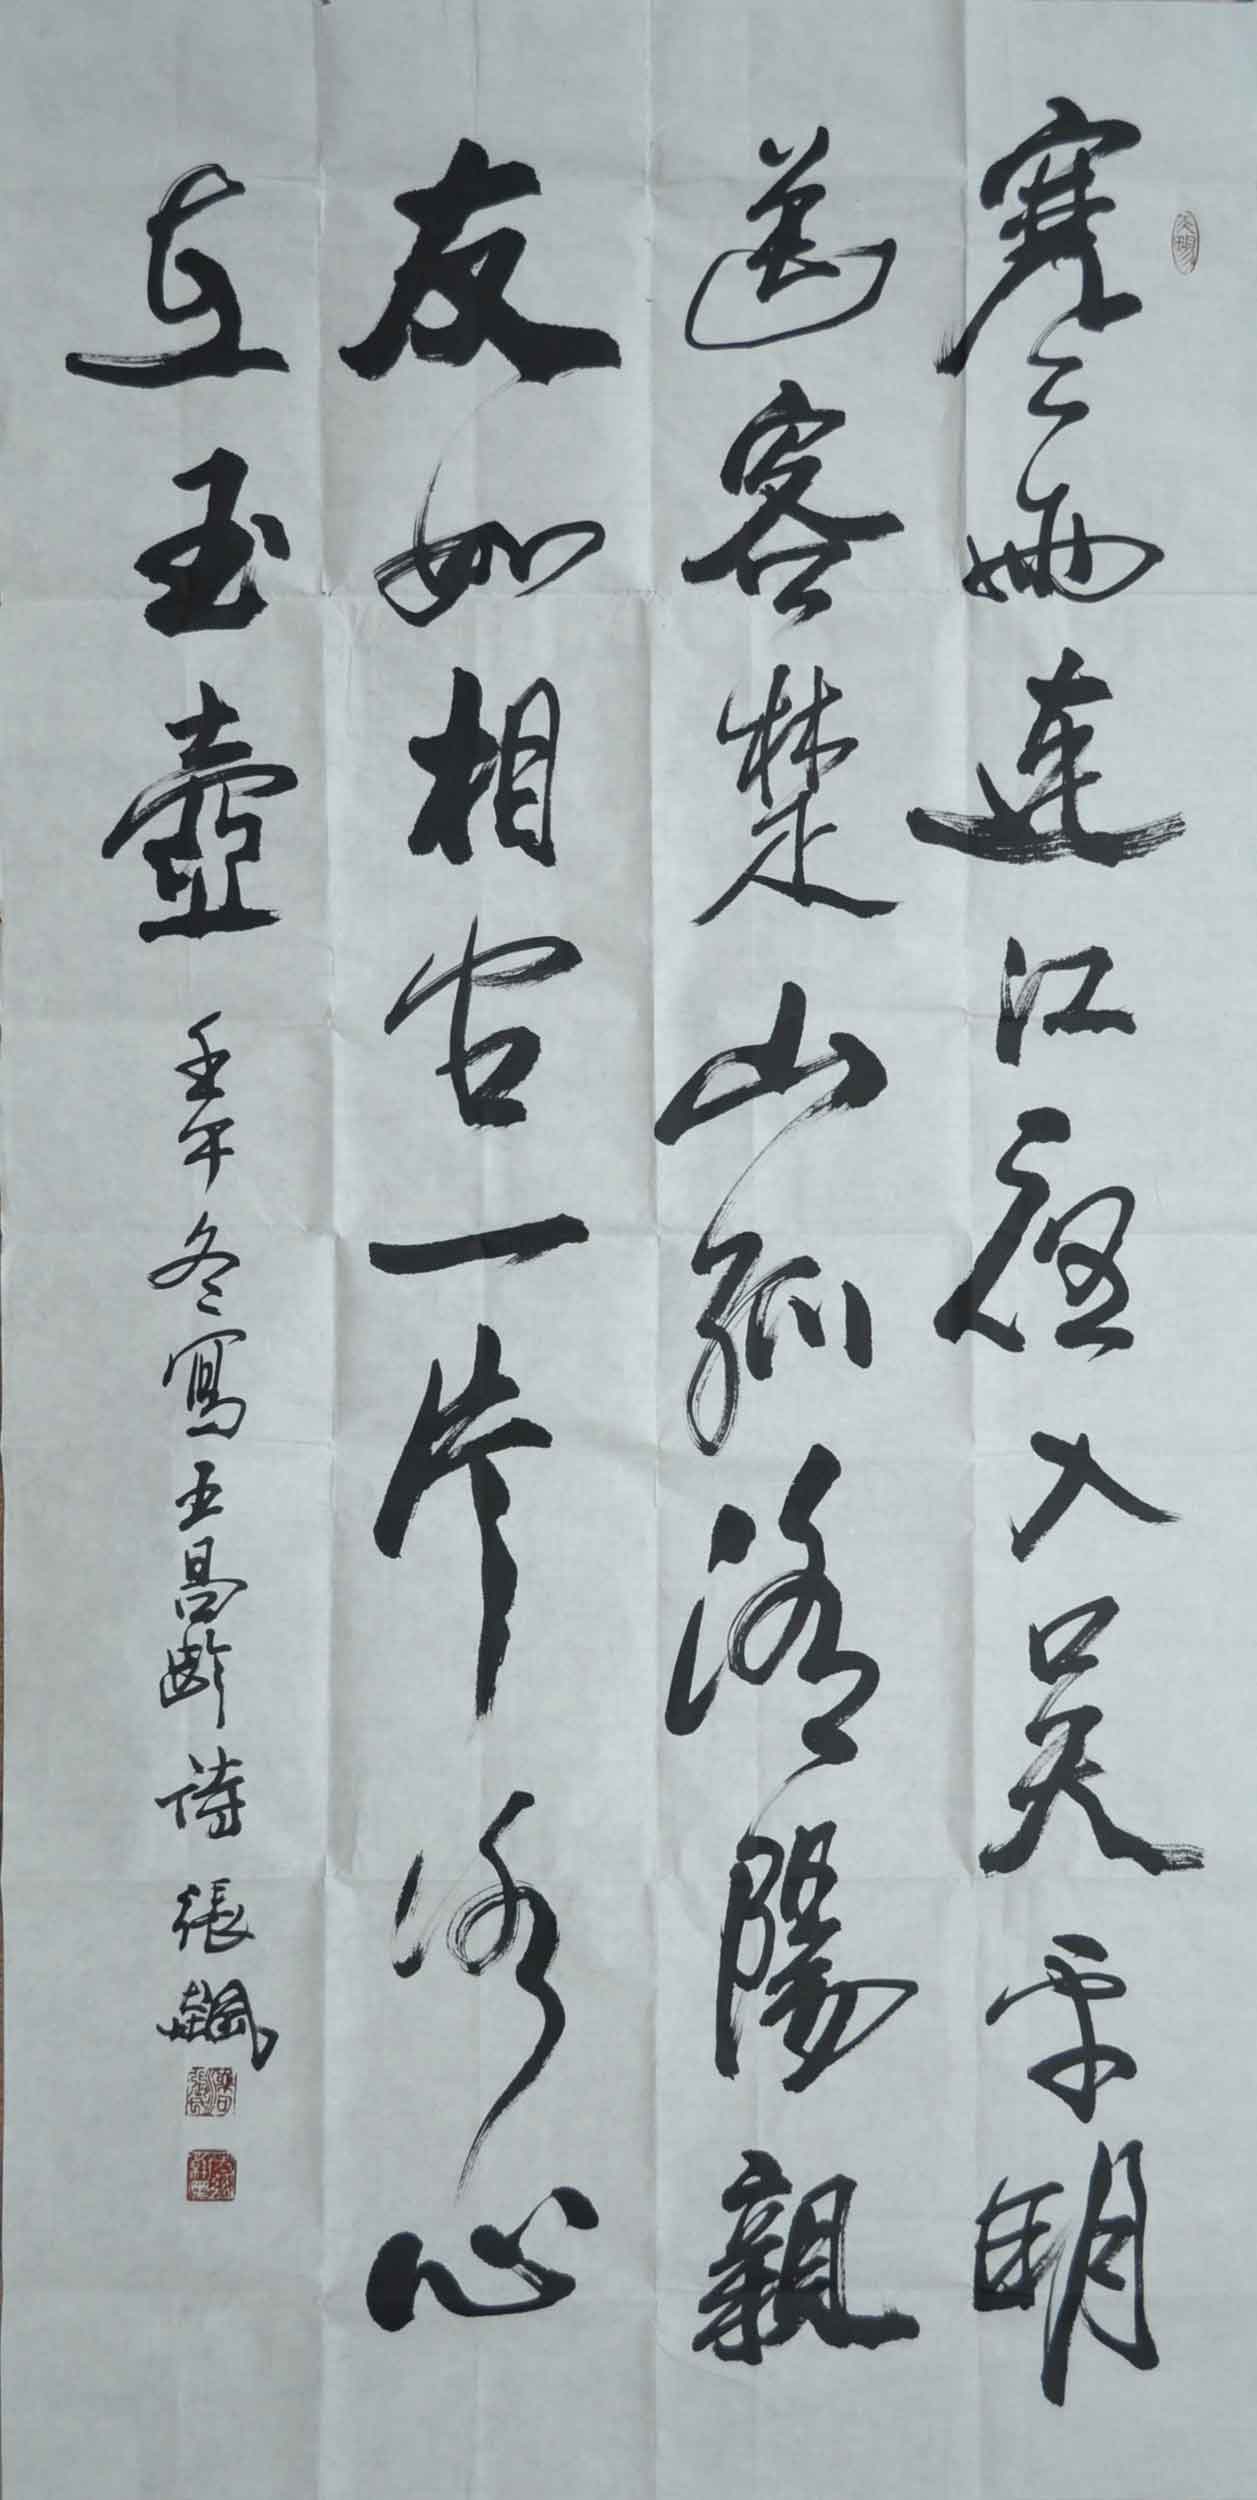 寒雨連江夜入吳平明
送客楚山孤洛陽親
友如相問一片冰心
在玉壺 壬午冬寫王昌齡詩 張飆